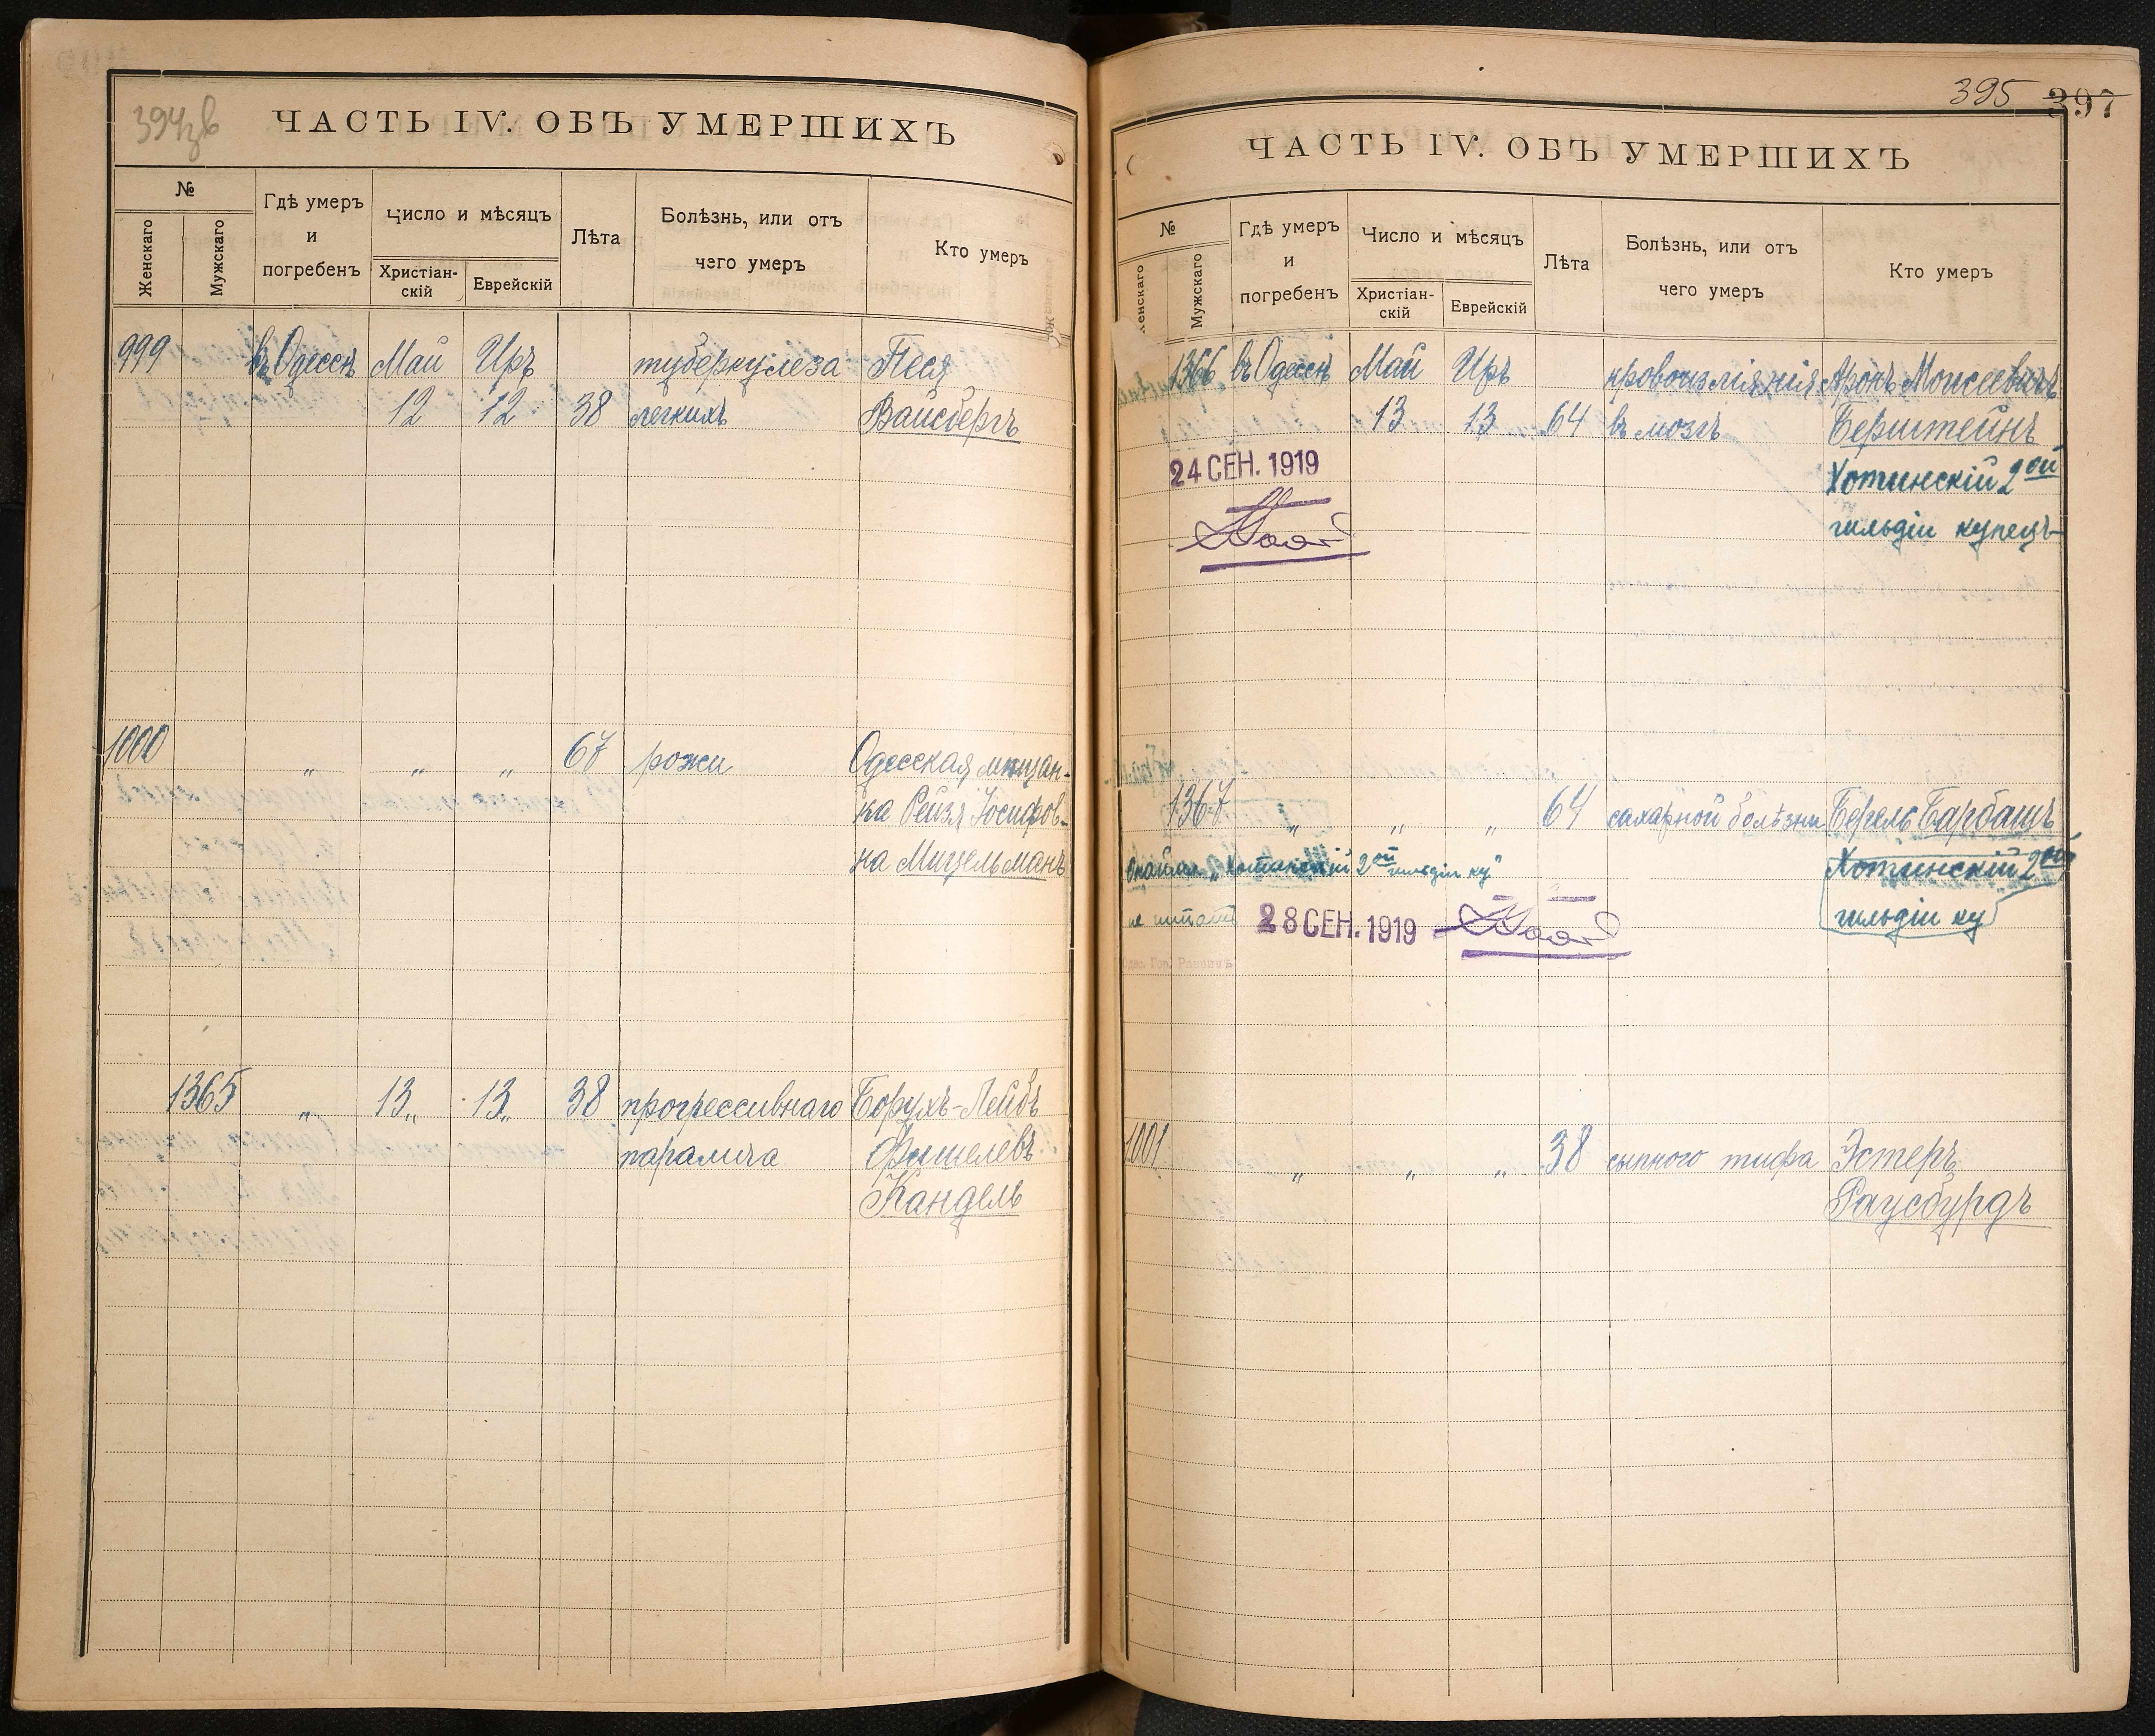 394 зв
ЧАСТЬ IV. ОБЪ УМЕРШИХЪ
№
Женскаго
Мужскаго
Гдѣ умеръ
и
погребенъ
Число и мѣсяцъ
Христіан-
скій
Еврейскій
Лѣта
Болѣзнь, или отъ
чего умеръ
Кто умеръ
999 въ Одессѣ Май Иръ туберкулеза Песя
12 12 38 легкихъ Вайсбергъ
1000 „ „ „ 67 рожи Одесская мѣщан-
ка Рейзя Іосифов-
на Мицельманъ
1365 „ 13 „ 13 „ 38 прогрессивнаго Борухъ-Лейбъ
паралича Фишелевъ
Кандель
395 397
ЧАСТЬ IV. ОБЪ УМЕРШИХЪ
№
Женскаго
Мужскаго
Гдѣ умеръ
и
погребенъ
Число и мѣсяцъ
Христіан-
скій
Еврейскій
Лѣта
Болѣзнь, или отъ
чего умеръ
Кто умеръ
1366 въ Одессѣ Май Иръ кровоизліянія Аронъ Моисеевичъ
13 13 64 въ мозгъ Бернштейнъ
24 СЕН. 1919 Хотинскій 2ой
гильдіи купецъ
1367 „ „ „ 64 сахарной болѣзни Берель Барбашъ
„Хотинскій 2ой гильдіи ку" Хотинскій 2ой
не читать 28 СЕН. 1919 гильдіи ку
Одес. Гор. Раввинъ
1001 „ „ „ 38 сыпного тифа Эстеръ
Раусбурдъ